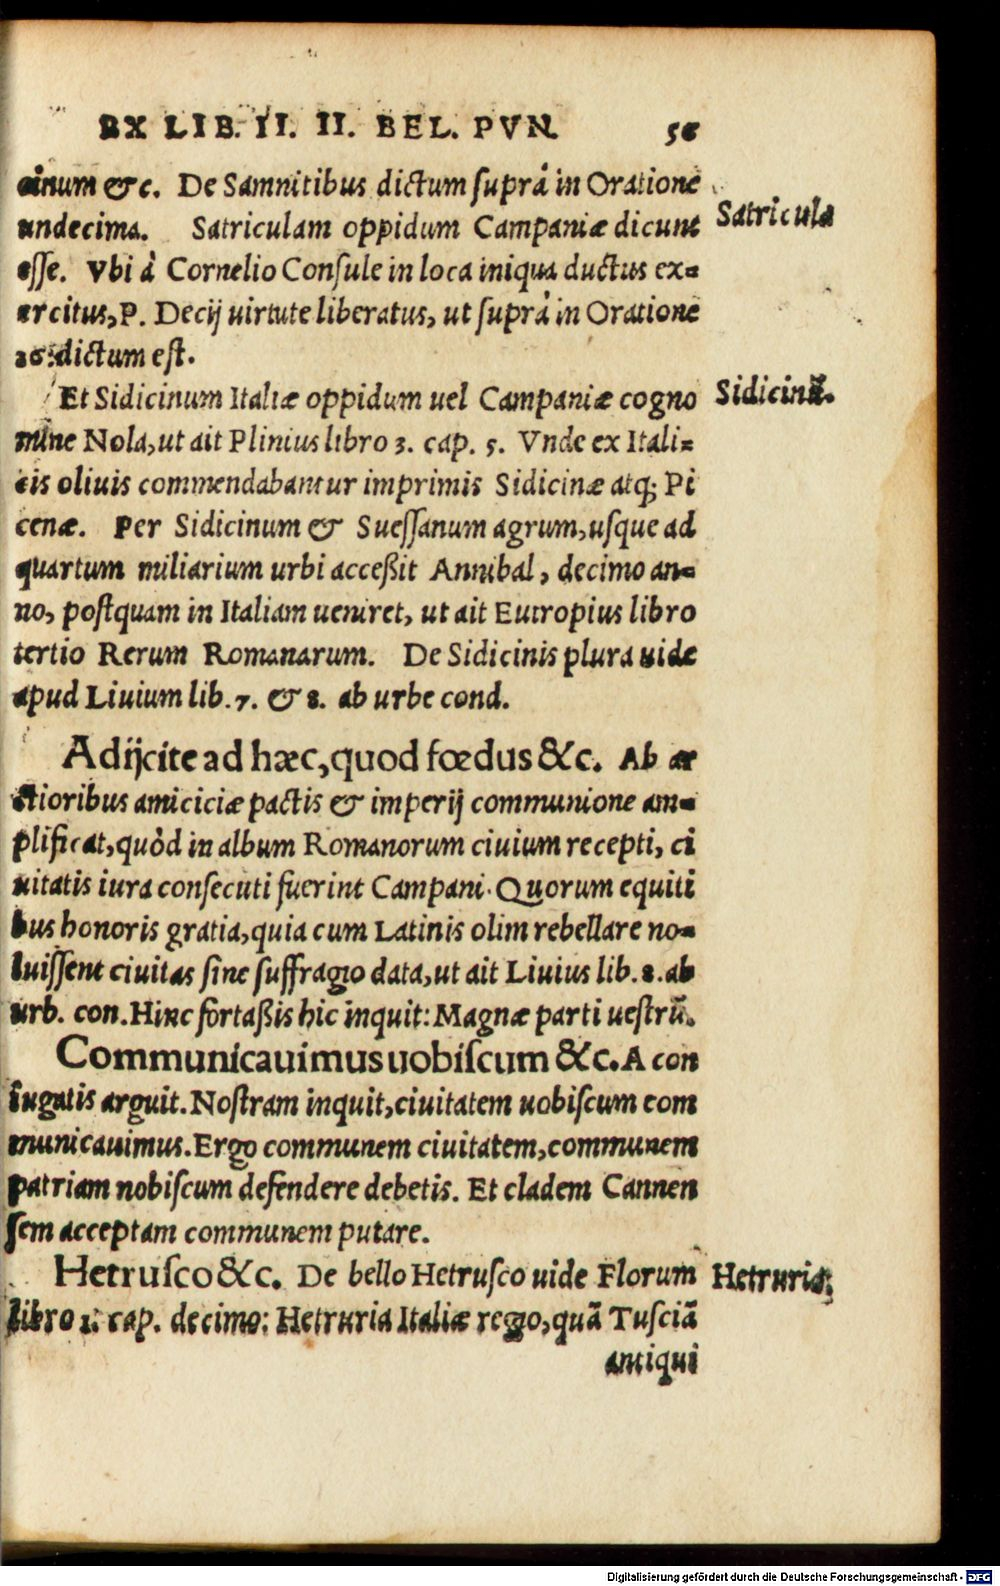 EX LIB. II. II. BEL. PVN. 56
cinum &c. De Samnitibus dictum suprà in Oratione
undecima. Satriculam oppidum Campaniæ dicunt
Satricula
esse. Vbi à Cornelio Consule in loca iniqua ductus ex-
ercitus, P. Decij uirtute liberatus, ut suprà in Oratione
26. dictum est.
Et Sidicinum Italiæ oppidum uel Campaniæ cogno
Sidicinũ.
mine Nola, ut ait Plinius libro 3. cap. 5. Vnde ex Itali-
cis oliuis commendabantur imprimis Sidicinæ atq; Pi
cenæ. Per Sidicinum & Suessanum agrum, usque ad
quartum miliarium urbi acceßit Annibal, decimo an-
no, postquam in Italiam ueniret, ut ait Eutropius libro
tertio Rerum Romanarum. De Sidicinis plura uide
apud Liuium lib. 7. & 8. ab urbe cond.
Adijcite ad hæc, quod fœdus &c. Ab ar
ctioribus amiciciæ pactis & imperij communione am-
plificat, quòd in album Romanorum ciuium recepti, ci
uitatis iura consecuti fuerint Campani. Quorum equiti
bus honoris gratia, quia cum Latinis olim rebellare no-
luissent ciuitas sine suffragio data, ut ait Liuius lib. 8. ab
urb. con. Hinc fortaßis hic inquit: Magnæ parti uestrũ.
Communicauimus uobiscum &c. A con
iugatis arguit. Nostram inquit, ciuitatem uobiscum com
municauimus. Ergo communem ciuitatem, communem
patriam nobiscum defendere debetis. Et cladem Cannen
sem acceptam communem putare.
Hetrusco &c. De bello Hetrusco uide Florum
Hetruria;
libro 1. cap. decimo: Hetruria Italiæ regio, quã Tusciã
antiqui
Digitalisierung gefördert durch die Deutsche Forschungsgemeinschaft - DFG